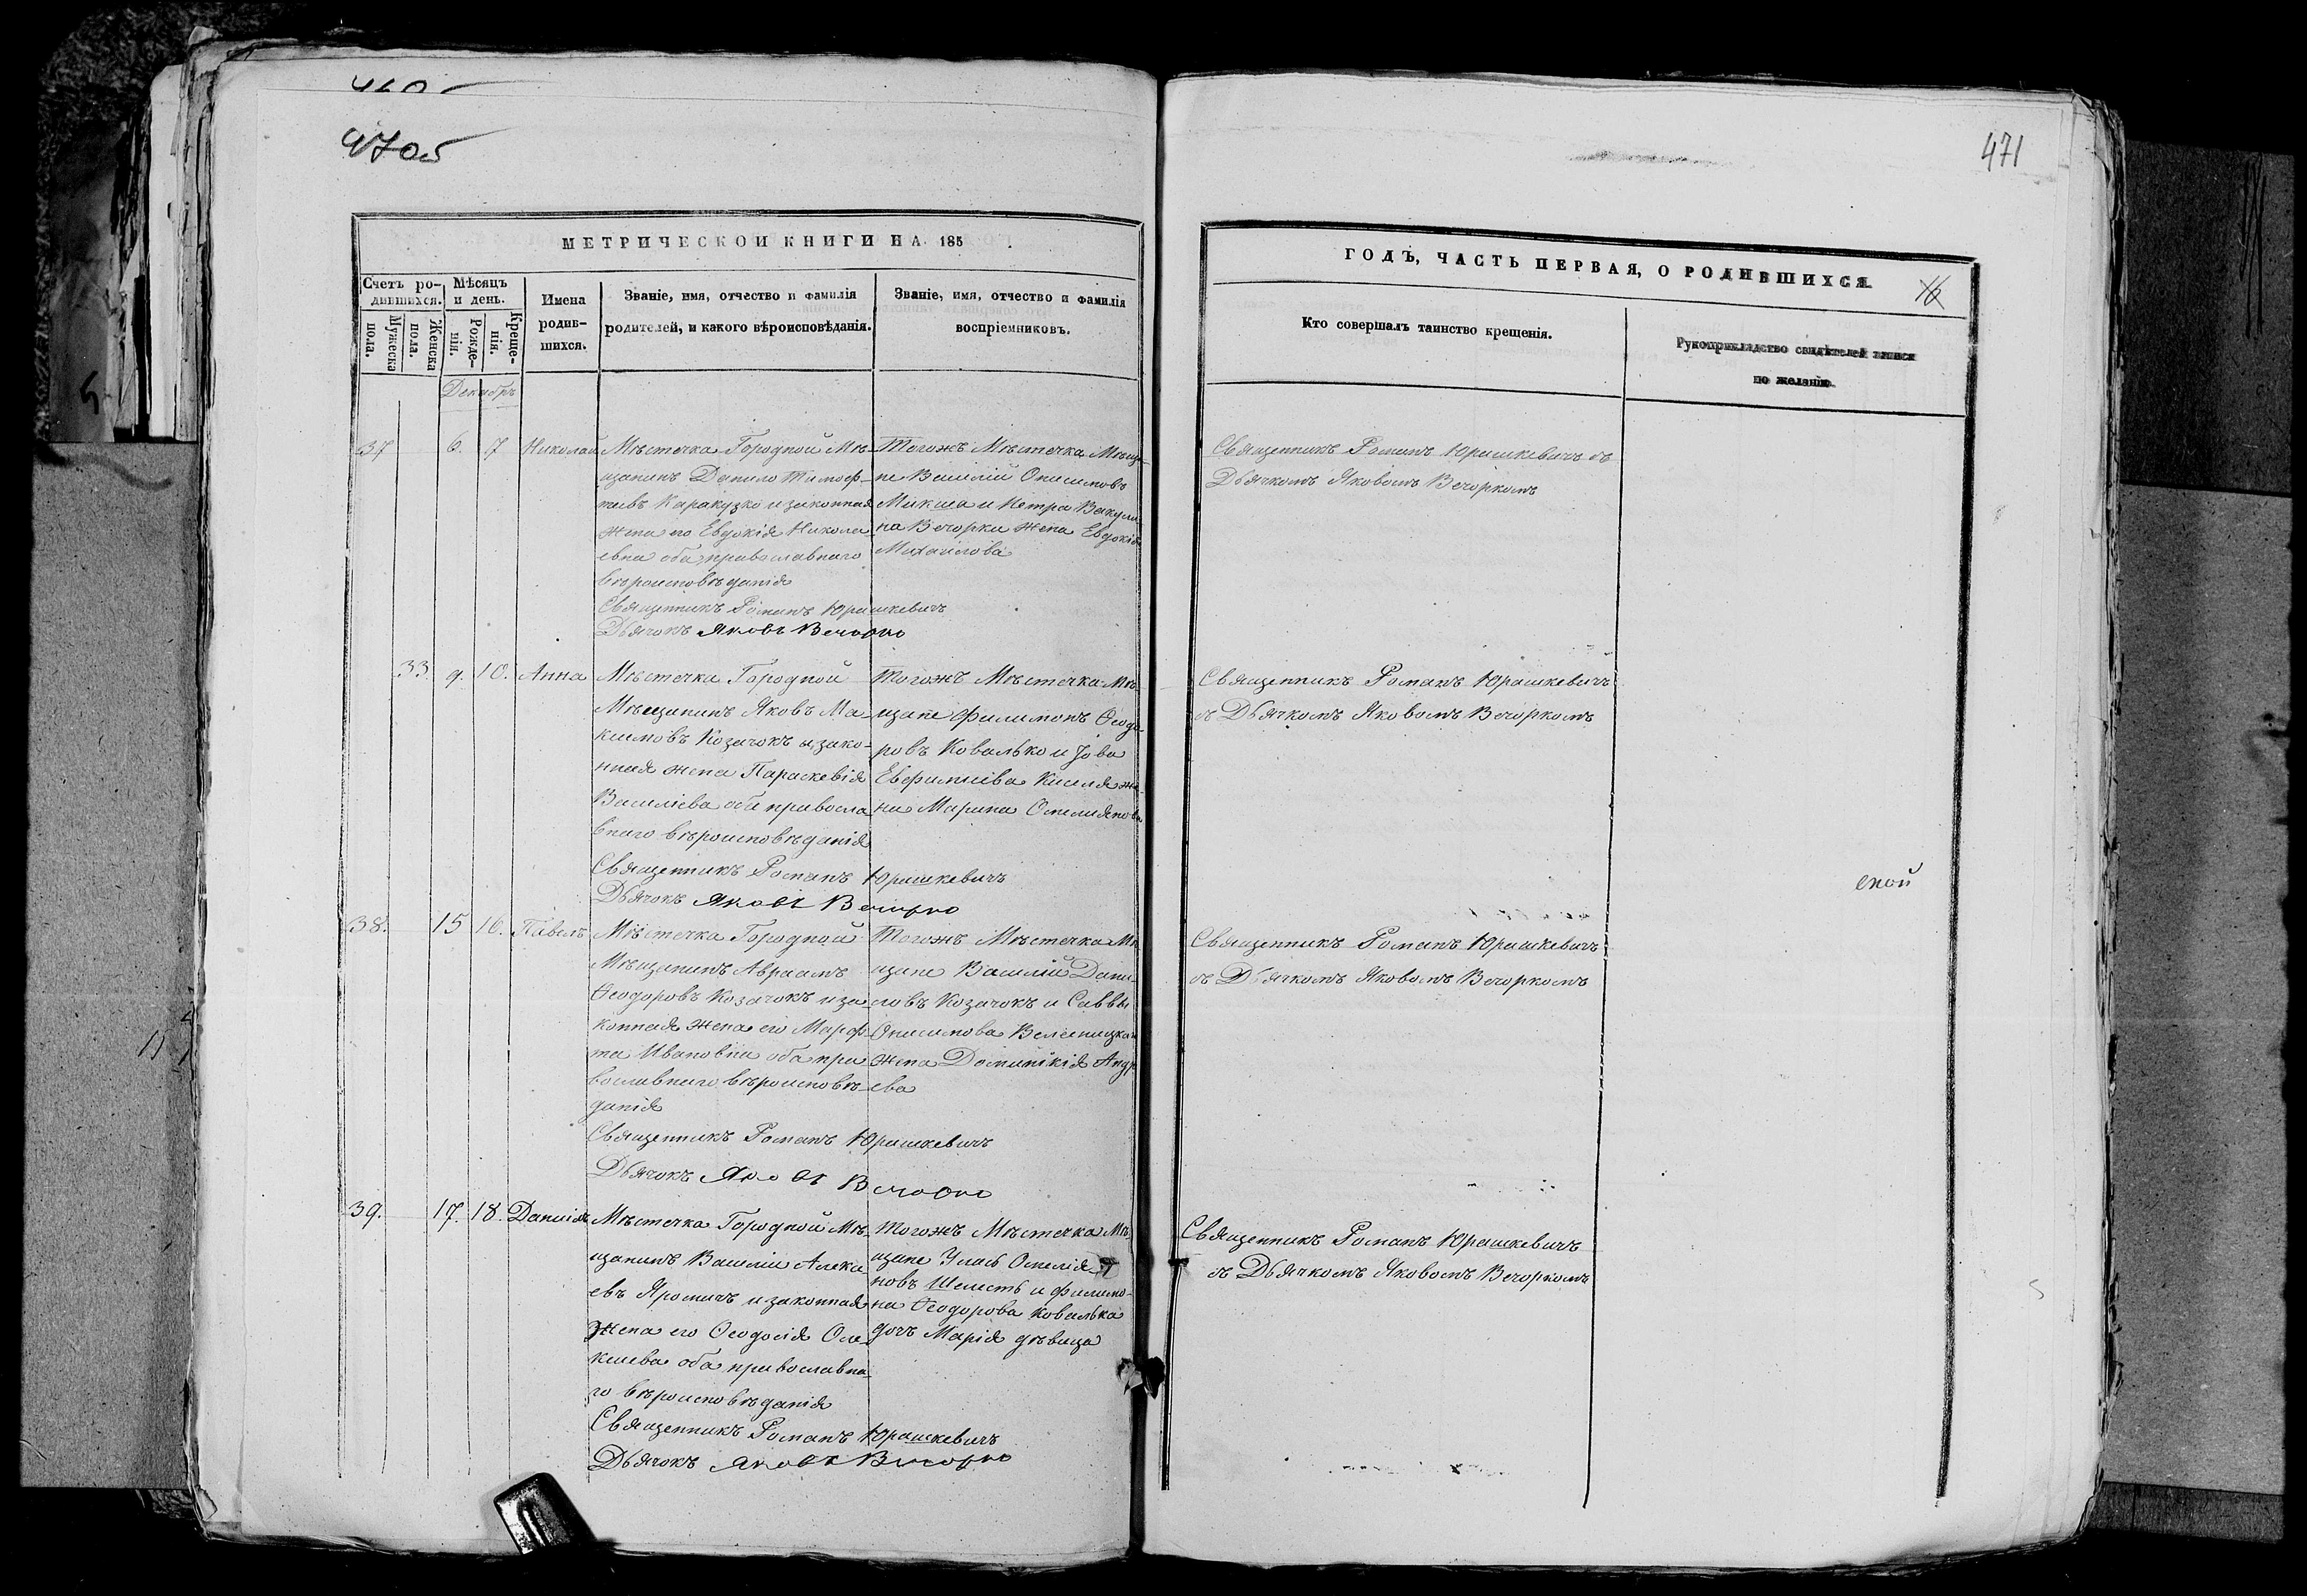 470б
471
МЕТРИЧЕСКОЙ КНИГИ НА 185
Счетъ ро-
дившихся.
Мужеска
пола.
Женска
пола.
Мѣсяцъ
и день.
Рожде-
нія.
Креще-
нія.
Имена
родив-
шихся.
Званіе, имя, отчество и фамилія
родителей, и какого вѣроисповѣданія.
Званіе, имя, отчество и фамилія
воспріемниковъ.
Декабрь
37 6. 7 Николай
Мѣстечка Городной Мѣ-
щанинъ Данило Тимоф-
жена его Евдокія Никола
евна оба православнаго
вѣроисповѣданія
Священникъ Романъ Юрашкевичъ
Дьячокъ Яковъ Вечорко
Тогожъ Мѣстечка Мѣща-
не Василій Онисимовъ
Микша и Петра Вакули
на Вечорки жена Евдокія
Михаилова
33 9. 10. Анна
Мѣстечка Городной
Мѣщанинъ Яковъ Ма-
ксимовъ Козачокъ и зако-
нная жена Параскевія
Василіева оба правосла
внаго вѣроисповѣданія
Священникъ Романъ Юрашкевичъ
Дьячокъ Яковъ Вечорко
Тогожъ Мѣстечка Мѣ-
щане Филимонъ Ѳеодо-
ровъ Ковалько и Іова
Евфиміева Киселя же-
на Марина Омеліянова
38. 15 16. Павелъ
Мѣстечка Городной
Мѣщанинъ Авраамъ
Ѳеодоровъ Козачокъ и за
конная жена его Марф-
та Ивановна оба пра
вославнаго вѣроисповѣ-
данія
Священникъ Романъ Юрашкевичъ
Дьячокъ Яковъ Вечорко
Тогожъ Мѣстечка Мѣ
щане Василій Дани-
ловъ Козачокъ и Саввы
Онисимова
жена Доминикія Андр
ева
39. 17. 18. Даніилъ
Мѣстечка Городной Мѣ-
щанинъ Василій Алекс
евъ Яромичъ и законная
жена его Ѳеодосія Оле
ксиева оба православна-
го вѣроисповѣданія
Священникъ Романъ Юрашкевичъ
Дьячокъ Яковъ Вечорко
Тогожъ Мѣстечка Мѣ
щане Уласъ Омелія
новъ Шелестъ и Филимо-
на Ѳеодорова Ковалька
дочъ Марія дѣвица
ГОДЪ, ЧАСТЬ ПЕРВАЯ, О РОДИВШИХСЯ.
16
Кто совершалъ таинство крещенія.
Рукоприкладство свидѣтелей записи
по желанію.
Священникъ Романъ Юрашкевичъ съ
Дьячкомъ Яковомъ Вечоркомъ
Священникъ Романъ Юрашкевичъ
съ Дьячкомъ Яковомъ Вечоркомъ
ской
Священникъ Романъ Юрашкевичъ
съ Дьячкомъ Яковомъ Вечоркомъ
Священникъ Романъ Юрашкевичъ
съ Дьячкомъ Яковомъ Вечоркомъ